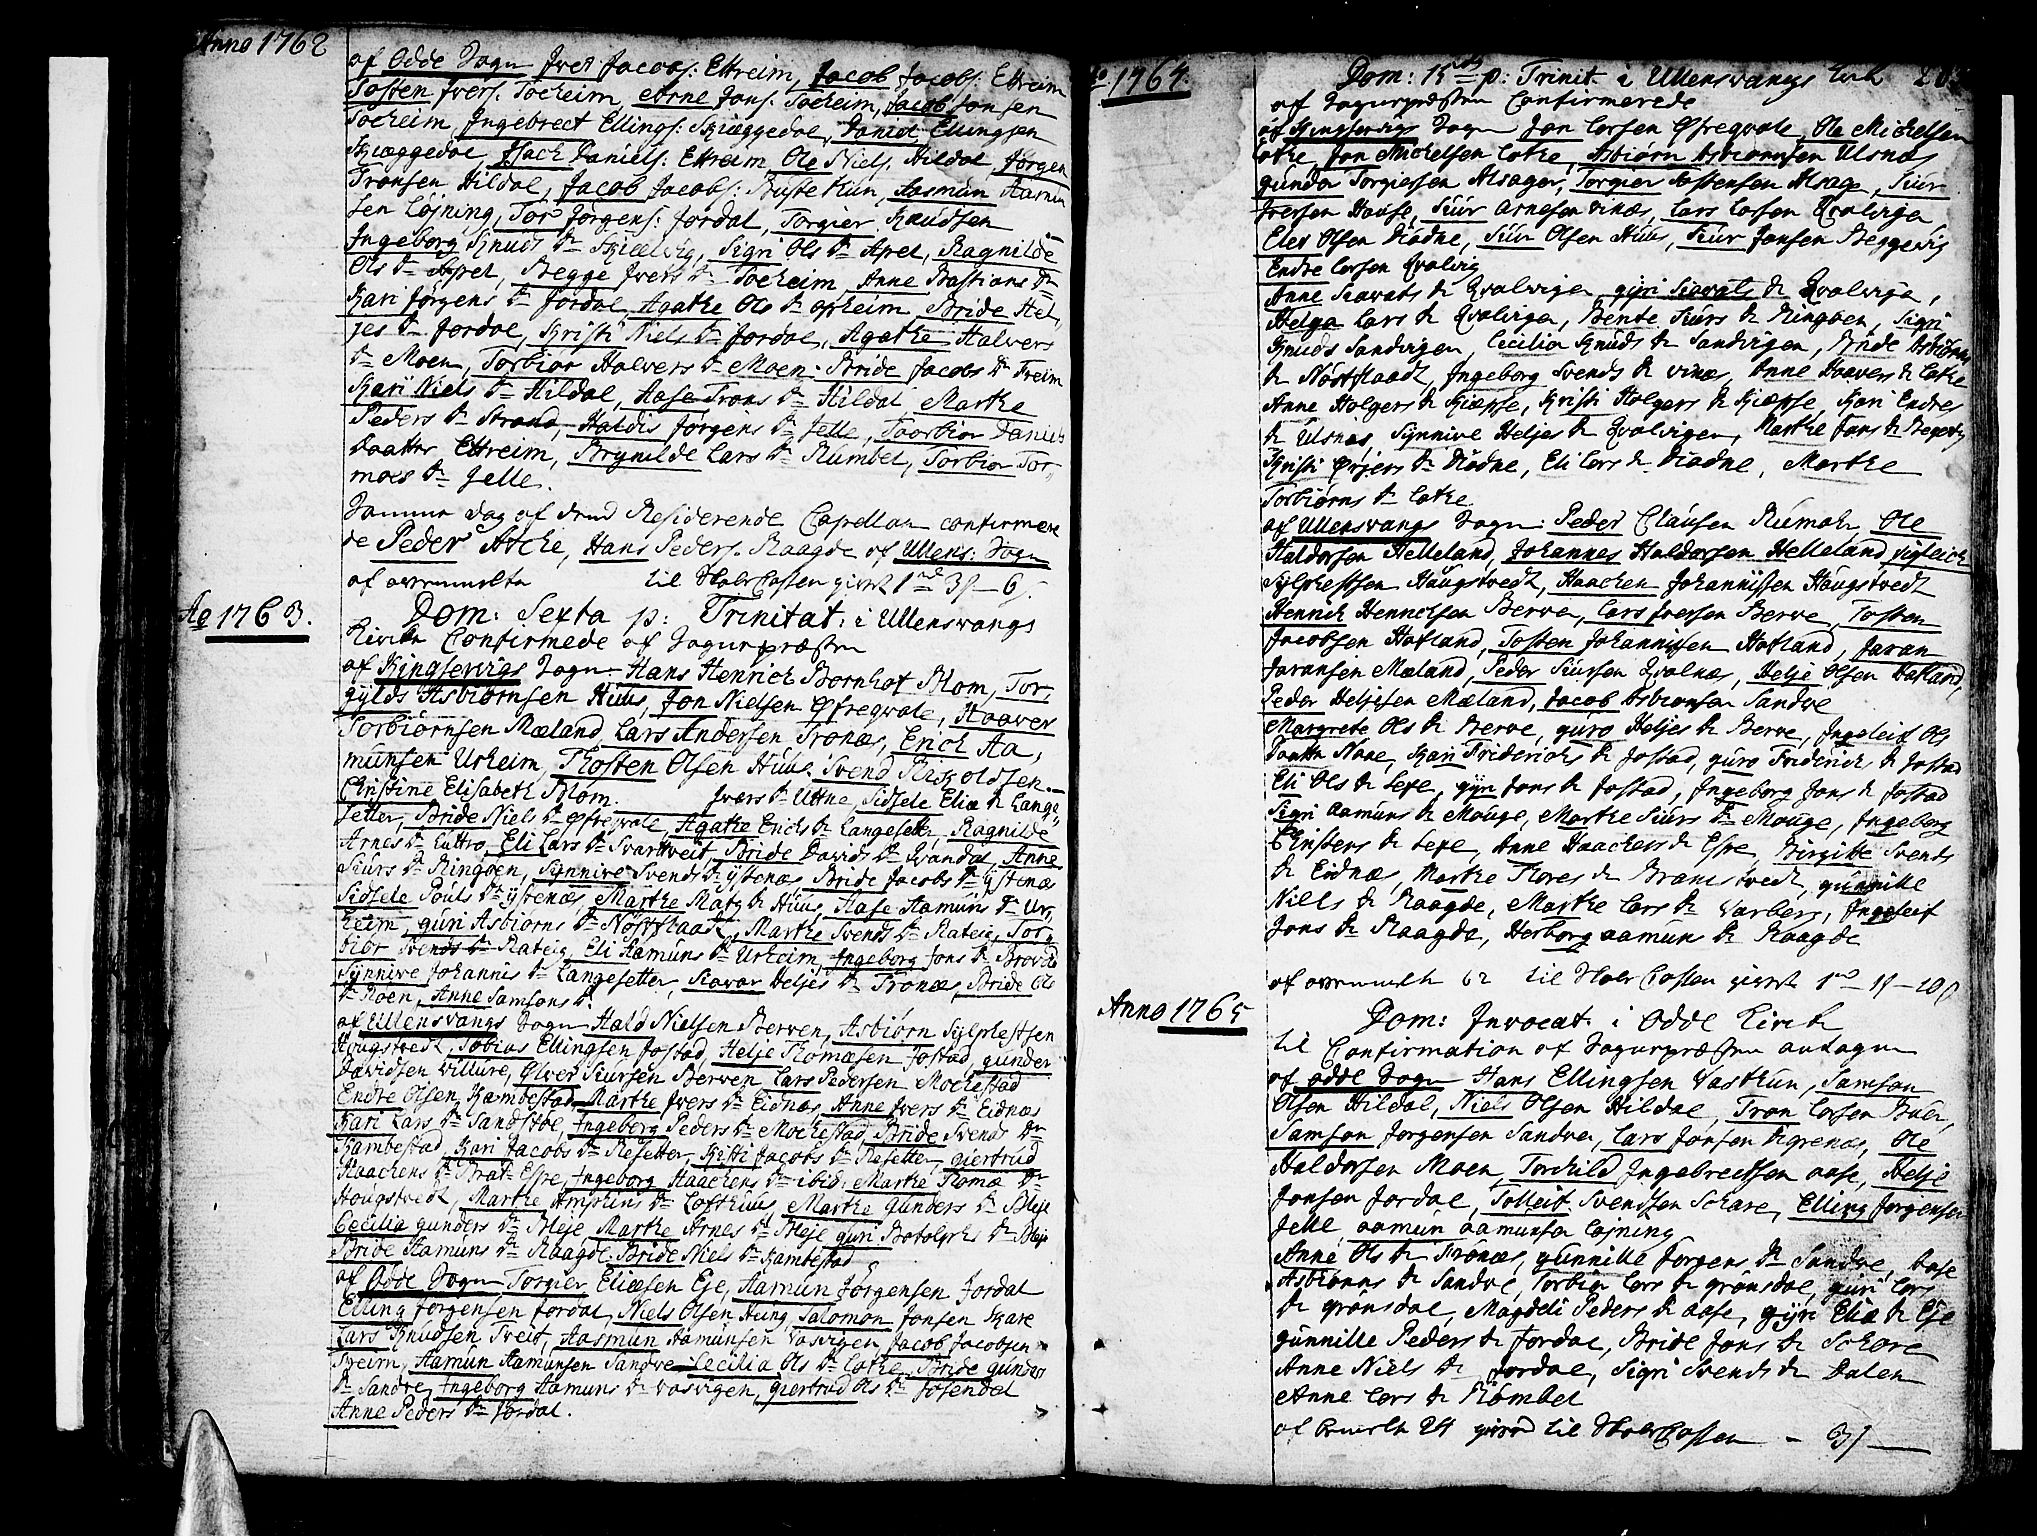 Anno 1762
af Odde Sogn Iver Jacobs: Ettreim, Jacob Jacobs: Ettreim
Tosten Ivers: Tocheim, Arne Jons: Tocheim, Jacob Jonsen
Tocheim, Ingebrect Ellings: Skiæggedal, Daniel Ellingsen
Skiæggedal, Isach Daniels: Ettreim, Ole Niels: Hildal, Jørgen
Tronsen Hildal, Jacob Jacobs: Bustetun, Aasmun Aasmun
sen Løjning, Tor Jørgens: Jordal, Torgier Knudsen
Ingeborg Knuds Dr Sigri Ols Dr Apel, Ragnilde
Ols Dr Apel, Begge Ivers Dr Tocheim Anne Bastians Dr
Kari Jørgens Dr Jordal, Agathe Ols Dr Opheim Bride Hel,
jes Dr Jordal, Kristi Niels Dr Jordal, Agathe Halvers
Dr Moen, Torbior Halvers Dr Moen, Bride Jacobs Dr Freim
Kari Niels Dr Hildal, Aase Trons Dr Hildal Marthe
Peders Dr Strand, Haldis Jørgens Dr Jelle, Torbior Daniels
Daatter Ettreim, Brynilde Lars Dr Rumbel, Torbior Tor
moes Dr Jelle.
Samme Dag af den Residerende Capellan confirmere
de Peder Aache, Hans Peders: Raagde af Ullens: Sogn
af ovenmelte til Skole Cassen givet
Ao 1763.
Dom: Sexta p: Trinitat: i Ullensvangs
Kirke Confirmede af Sognepræsten
af Kingservigs Sogn Hans Henrich Bornhof Blom, Tor,
gylds Asbiørnsen Huus, Jon Nielsen Espeqvale, Haaver
Torbiørnsen Mæland, Lars Andersen Tronæs, Erich Aa,
munsen Urheim, Thosten Olsen Huus, Svend
Christine Elisabeth Blom. Ivers Dr Uttne, Sidsele Eliæ Dr Lange,
setter, Bride Niels Dr Espeqvale, Agathe Erichs Dr Langesetter, Ragnilde
Arnes Dr Luttro, Eli Lars Dr Svartveit, Bride Davids Dr Qvandal, Anne
Siurs Dr Ringøen, Synnive Svends Dr Ystenæs Bride Jacobs Dr Ystenæs
Sidsele Pouls Dr Ystenæs Marthe Matz Dr Huus, Aase Aamuns Dr Ur,
heim, guri Asbiørns Dr Nøstflaadt, Marthe Svends Dr Rateig, Tor,
bior Svends Dr Rateig Eli Aamuns Dr Urheim, Ingeborg Jons Dr
Synnive Johannis Dr Langesetter, Siovar Heljes Dr Tronæs, Bride Ols
Dr Røen, Anne Samsons Dr
af Ullensvangs Sogn Hald Nielsen Berven, Asbiørn Sylfestsen
Hougstvedt, Tobias Ellingsen Jostad, Helje Thomæsen Jostad, gunder
Davidsen Villure, Olver Siursen Berven Lars Pedersen Mochestad
Endre Olsen Kambestad Marthe Ivers Dr Eidnæs Anne Ivers Dr Eidnæs
Kari Lars Dr Sandstøe, Ingeborg Peders Dr Mochestad, Bride Svends Dr
Kambestad, Kari Jacobs Dr Resetter, Kristi Jacobs Dr Resetter, giertrud
Haachens Dr Brat-Espe, Ingeborg Haachens Dr ibid: Marthe Thomæ Dr
Hougstvedt, Marthe Dr Lofthuus, Marthe gunders Dr Bleje
Cecilia gunders Dr Bleje, Marthe Arnes Dr Bleje guri Botolphs Dr Bleje
Bride Aamuns Dr Raagde, Bride Niels Dr Kambestad
af Odde Sogn Torgier Eliæsen Eje, Aamun Jørgensen Jordal
Elling Jørgensen Jordal, Niels Olsen Salomon Jonsen Skare
Lars Knudsen Treit, Aasmun Aamunsen Vasvigen Jacob Jacobsen
Freim, Aamun Aamunsen Sandve Cecilia Ols Dr Lothe, Bride gunders
Dr Sandve Ingeborg Aamuns Dr Vasvigen, giertrud Ols Dr Josendel
Anne Peders Dr Jordal.
Ao 1764.
Dom: 15de p: Trinit: i Ullensvangs Kirke
af Sognepræsten Confirmerede
af Kingservigs Sogn Jon Larsen Espeqvale, Ole Michelsen
Lothe, Jon Michelsen Lothe, Asbiørn Asbiørnsen Ulsnæs
gunder Torgiersen Alsager, Torgier Aastensen Alsager, Siur
Iversen Hause, Siur Arnesen Vinæs, Lars Larsen Qvalvigen
Elev Olsen Diødne, Siur Olsen Huus, Siur Jonsen Beggevig
Endre Larsen Qvalvig
Anne Siovats Dr Qvalvigen gyri Siovats Dr Qvalvigen,
Helga Lars Dr Qvalvigen, Bente Siurs Dr Ringøen, Sigri
Knuds Sandvigen, Cecilia Knuds Dr Sandvigen, Bride Asbiørns
Dr Nøstflaadt, Ingeborg Svends Dr Vinæs, Anne Haavers Dr Lothe
Anne Holgers Dr Kiæpse, Kristi Holgers Dr Kiæpse, Kari Endres
Dr Ulsnæs, Synnive Heljes Dr Qvalvigen, Marthe Jons Dr Begevig
Kristi Ørjers Dr Diødne, Eli Lars Dr Diødne, Marthe
Torbiørns Dr Lothe
af Ullensvangs Sogn: Peder Clausen Rumohr, Ole
Haldorsen Helleland, Johannes Haldorsen Helleland,
Sylfestsen Haugstvedt, Haachen Johannissen Haugstvedt
Henrich Henrichsen Berve, Lars Iversen Berve, Tosten
Jacobsen Hofland, Tosten Johannissen Hofland, Jaran
Jaransen Mæland, Peder Siursen Qvalnæs, Helje Olsen Hofland,
Peder Heljesen Mæland, Jacob Asbiørnsen Sandve
Margrete Ols Dr Berve, guro Heljes Dr Berve, Ingeleif Ols
Daatter Naae, Kari Friderichs Dr Jostad, guro Friderich Dr Jostad
Eli Ols Dr Sexe, gyri Jons Dr Jostad, Ingeborg Jons Dr Jostad
Sigri Aamuns Dr Mouge, Marthe Siurs Dr Mouge, Ingeborg
Christens Dr Sexe, Anne Haachens Dr Espe, Birgitte Svends
Dr Eidnæs, Marthe Thores Dr Bramstvedt, gunnille
Niels Dr Raagde, Marthe Lars Dr Varberg, Ingeleif
Jons Dr Raagde, Herborg aamuns Dr Raagde
af ovenmelte 62 til Skole Cassen givet
Anno 1765
Dom: Invocat: i Odde Kirke
til Confirmation af Sognepræsten antagne
af Odde Sogn Hans Ellingsen Vastun, Samson
Olsen Hildal, Niels Olsen Hildal, Tron Larsen Buer,
Samson Jørgensen Sandven, Lars Jonsen Digrenæs, Ole
Haldorsen Moen, Torchild Ingebrectsen aase, Helje
Jonsen Jordal, Tolleif Svendsen Schare, Elling Jørgensen
Jelle, aamun aamunsen Løjning
Anne Ols Dr Tronæs, gunnille Jørgens Dr Sandve, Aase
Asbiørns Dr Sandve, Torbior Lars Dr grønsdal, guri Lars
Dr grønsdal, Magdeli Peders Dr aase, gyri Eliæ Dr Eje
gunnille Peders Dr Jordal, Bride Jons Dr Schare
Anne Niels Dr Jordal, Sigri Svends Dr Dalen
Anne Lars Dr Rømbel
af bemelte 24 givet til Skole Cassen - 3/